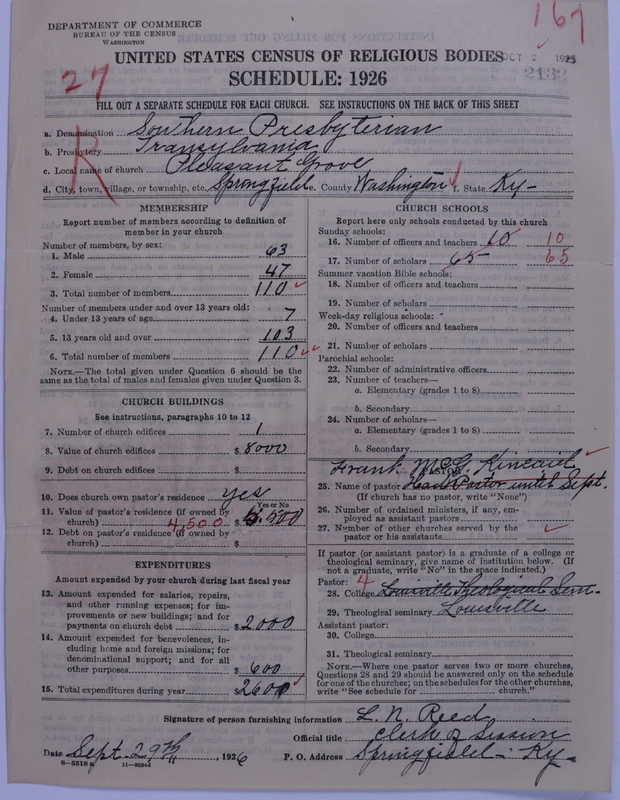 DEPARTMENT OF COMMERCE
BUREAU OF THE CENSUS
WASHINGTON
167
UNITED STATES CENSUS OF RELIGIOUS BODIES
OCT 2 1925
2132
27
SCHEDULE: 1926
FILL OUT A SEPARATE SCHEDULE FOR EACH CHURCH. SEE INSTRUCTIONS ON THE BACK OF THIS SHEET
R
a. Denomination Southern Presbyterian
b. Presbytery Transylvania
c. Local name of church Pleasant Grove
d. City, town, village, or township, etc. Springfield e. County Washington f. State Ky-
MEMBERSHIP
Report number of members according to definition of
member in your church
Number of members, by sex:
1. Male 63
2. Female 47
3. Total number of members 110
Number of members under and over 13 years old:
4. Under 13 years of age 7
5. 13 years old and over 103
6. Total number of members 110
NOTE.—The total given under Question 6 should be the
same as the total of males and females given under Question 3.
CHURCH BUILDINGS
See instructions, paragraphs 10 to 12
7. Number of church edifices 1
8. Value of church edifices $ 8000
9. Debt on church edifices $
10. Does church own pastor's residence yes
Yes or No
11. Value of pastor's residence (if owned by
church) 4,500 $ 5.500
12. Debt on pastor's residence (if owned by
church) $
EXPENDITURES
Amount expended by your church during last fiscal year
13. Amount expended for salaries, repairs,
and other running expenses; for im-
provements or new buildings; and for
payments on church debt $ 2000
14. Amount expended for benevolences, in-
cluding home and foreign missions; for
denominational support; and for all
other purposes $ 600
15. Total expenditures during year $ 2600
CHURCH SCHOOLS
Report here only schools conducted by this church
Sunday schools:
16. Number of officers and teachers 10 10
17. Number of scholars 65 65
Summer vacation Bible schools:
18. Number of officers and teachers
19. Number of scholars
Week-day religious schools:
20. Number of officers and teachers
21. Number of scholars
Parochial schools:
22. Number of administrative officers
23. Number of teachers—
a. Elementary (grades 1 to 8)
b. Secondary
24. Number of scholars—
a. Elementary (grades 1 to 8)
b. Secondary
Frank McG. Kincaid
PASTOR
25. Name of pastor Pastor until Sept.
(If church has no pastor, write "None")
26. Number of ordained ministers, if any, em-
ployed as assistant pastors
27. Number of other churches served by the
pastor or his assistants
If pastor (or assistant pastor) is a graduate of a college or
theological seminary, give name of institution below. (If
not a graduate, write "No" in the space indicated.)
Pastor: 4
28. College Louisville Theological Sem.
29. Theological seminary Louisville
Assistant pastor:
30. College
31. Theological seminary
NOTE.—Where one pastor serves two or more churches,
Questions 28 and 29 should be answered only on the schedule
for one of the churches; on the schedules for the other churches,
write "See schedule for church."
Signature of person furnishing information L. N. Reed
Official title Clerk of Session
Date Sept. 29th, 1926 P. O. Address Springfield - Ky-
8-5518 a 11-9054